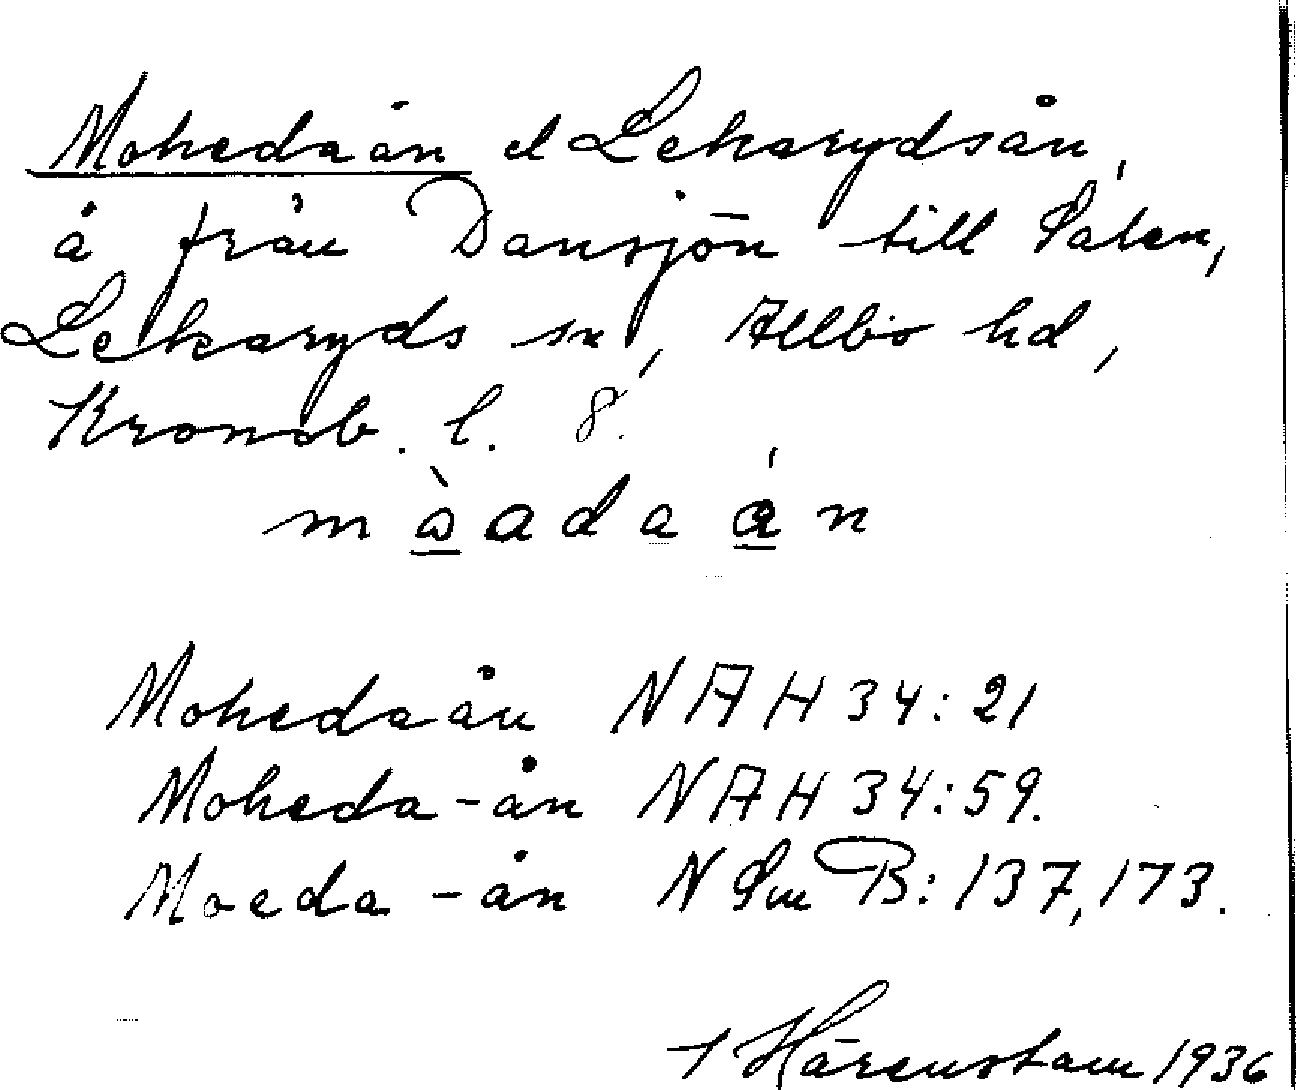 Mohedaån el Lekarydsån,
å från Dansjön till Salen,
Lekaryds sn, Allbo hd,
Kronob. l. 8.
måadaån
Mohedaån NAH 34:21
Moheda-ån NAH 34:59.
Moeda-ån N Sm B: 137, 173.
Härenstam 1936